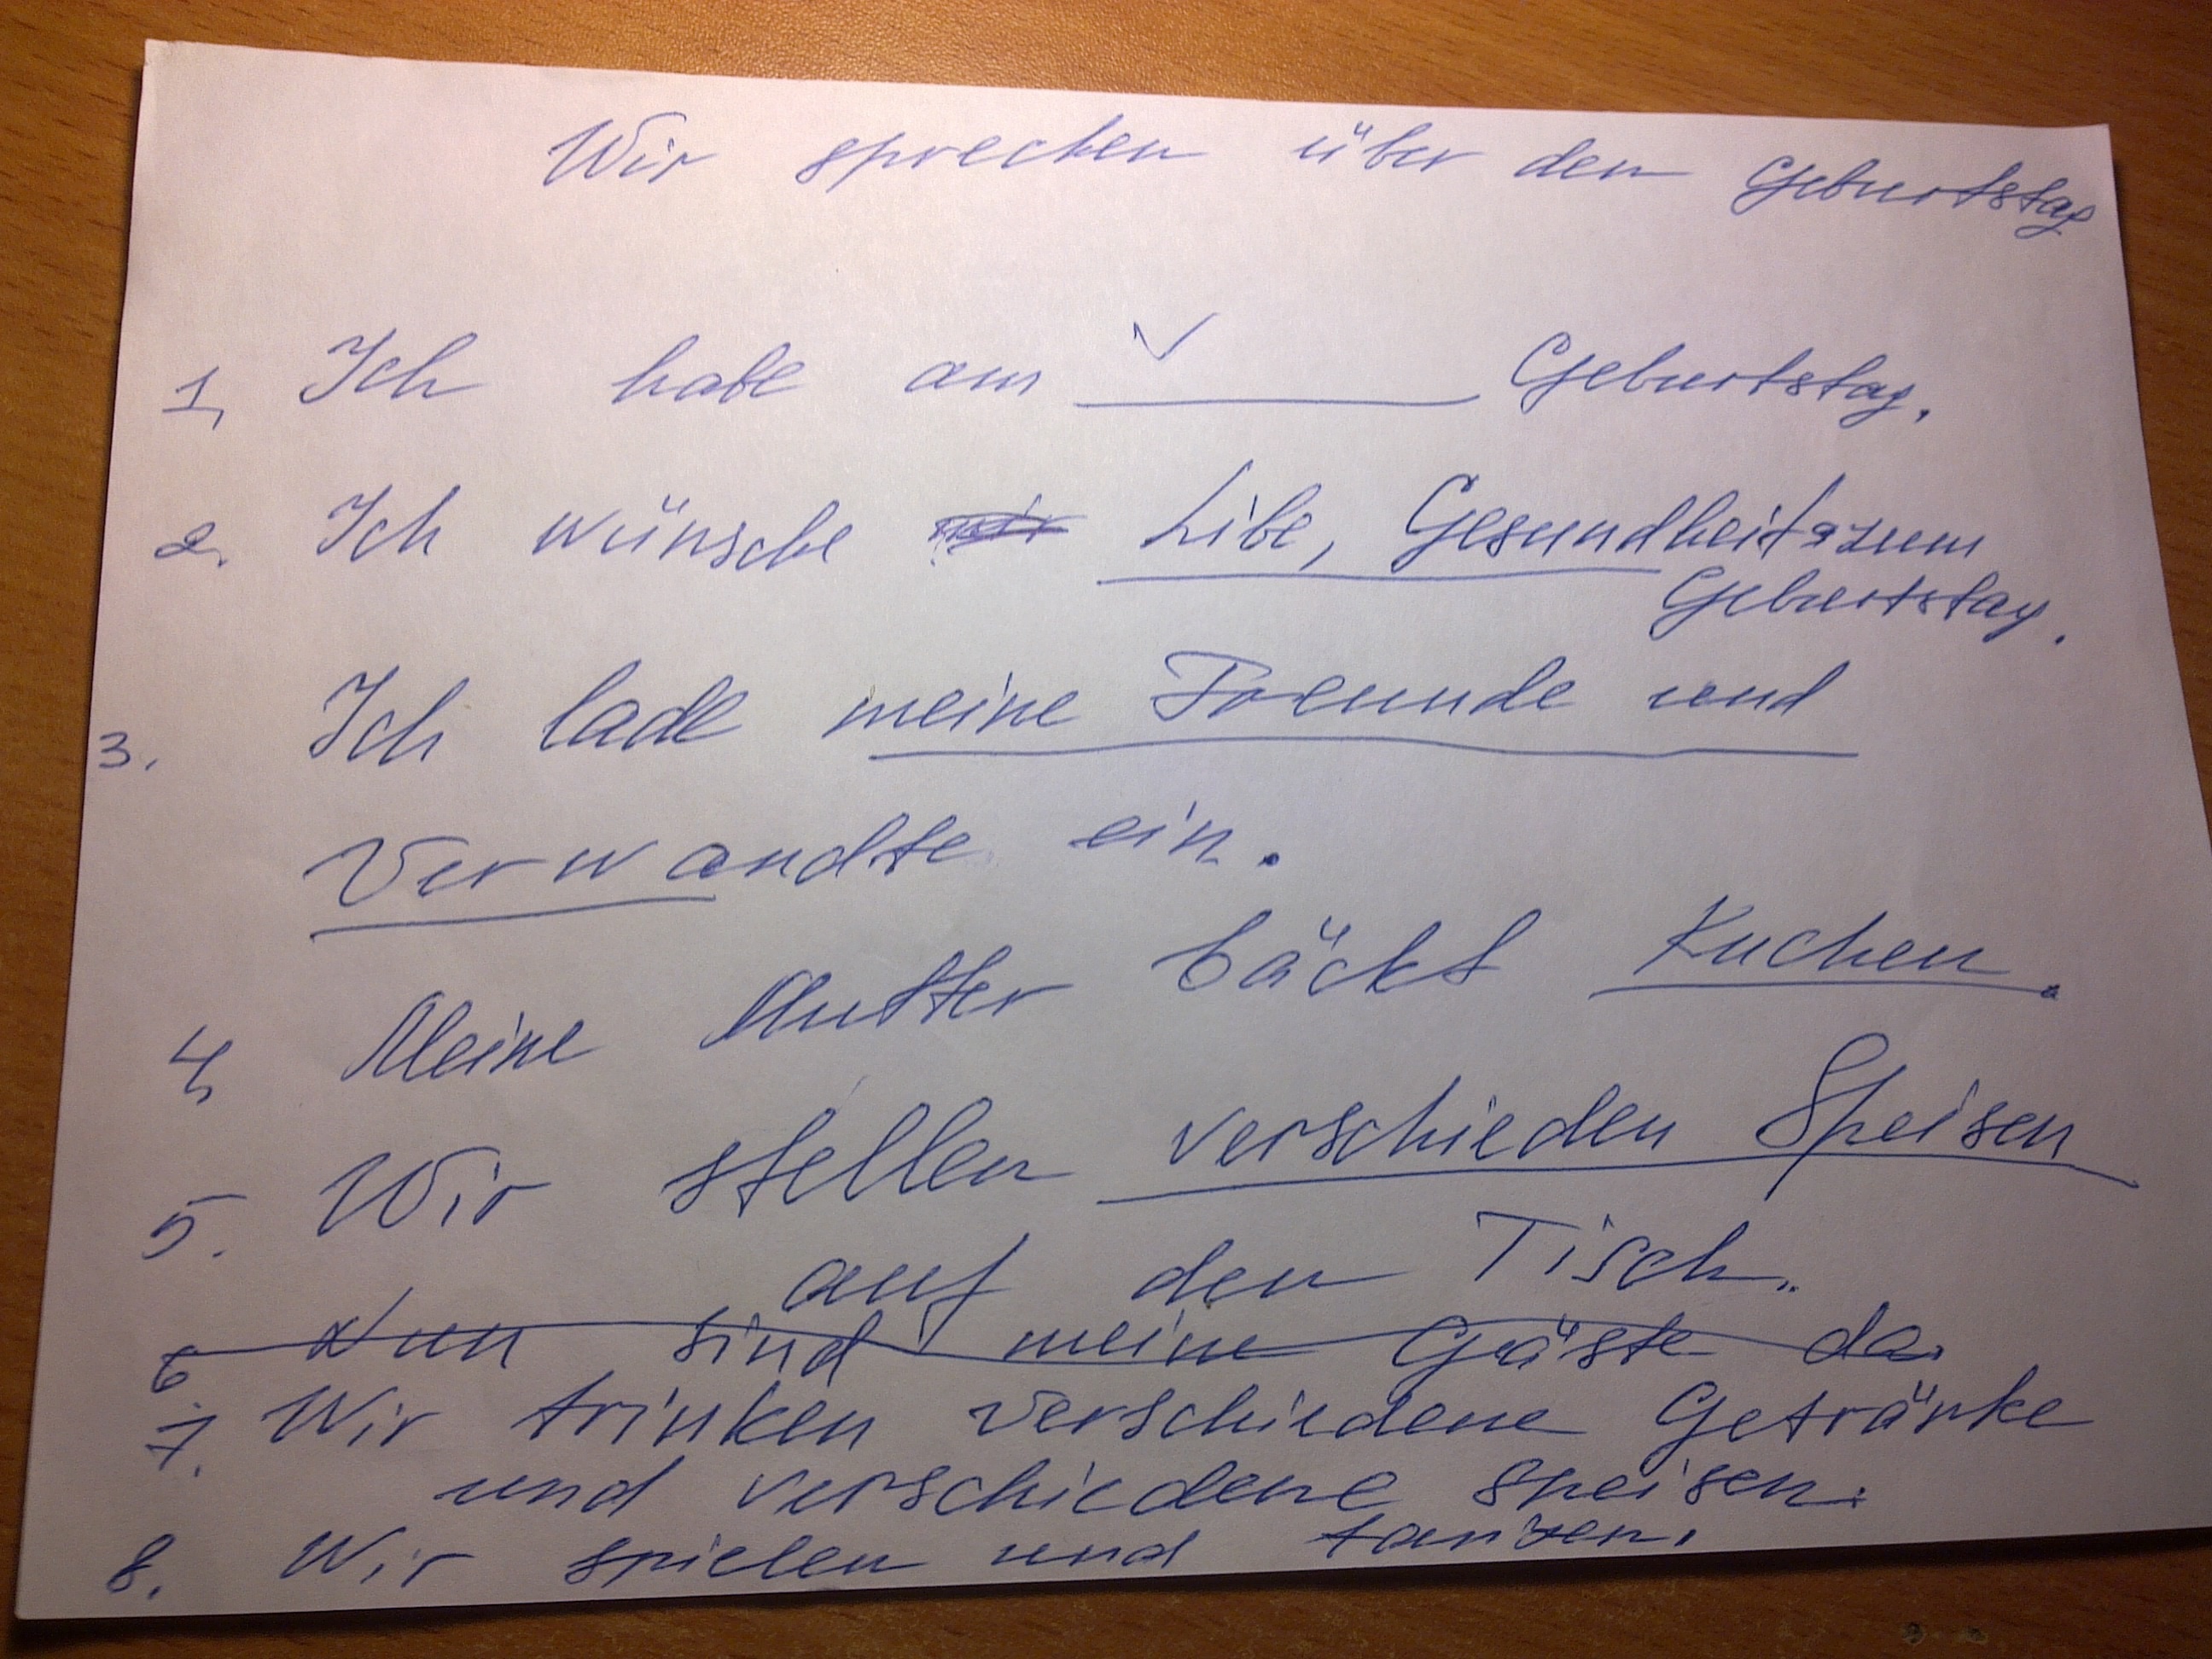 Wir sprechen über den Geburtstag
1, Ich habe am ______ Geburtstag.
2. Ich wünsche Libe, Gesundheit zum
Geburtstag.
3. Ich lade meine Freunde und
Verwandte ein.
4, Meine Mutter bäckt Kuchen.
5. Wir stellen verschieden Speisen
auf den Tisch.
6 Nun sind meine Gäste da.
7. Wir trinken verschiedene Getränke
und verschiedene speisen.
8. Wir spielen und tanzen.